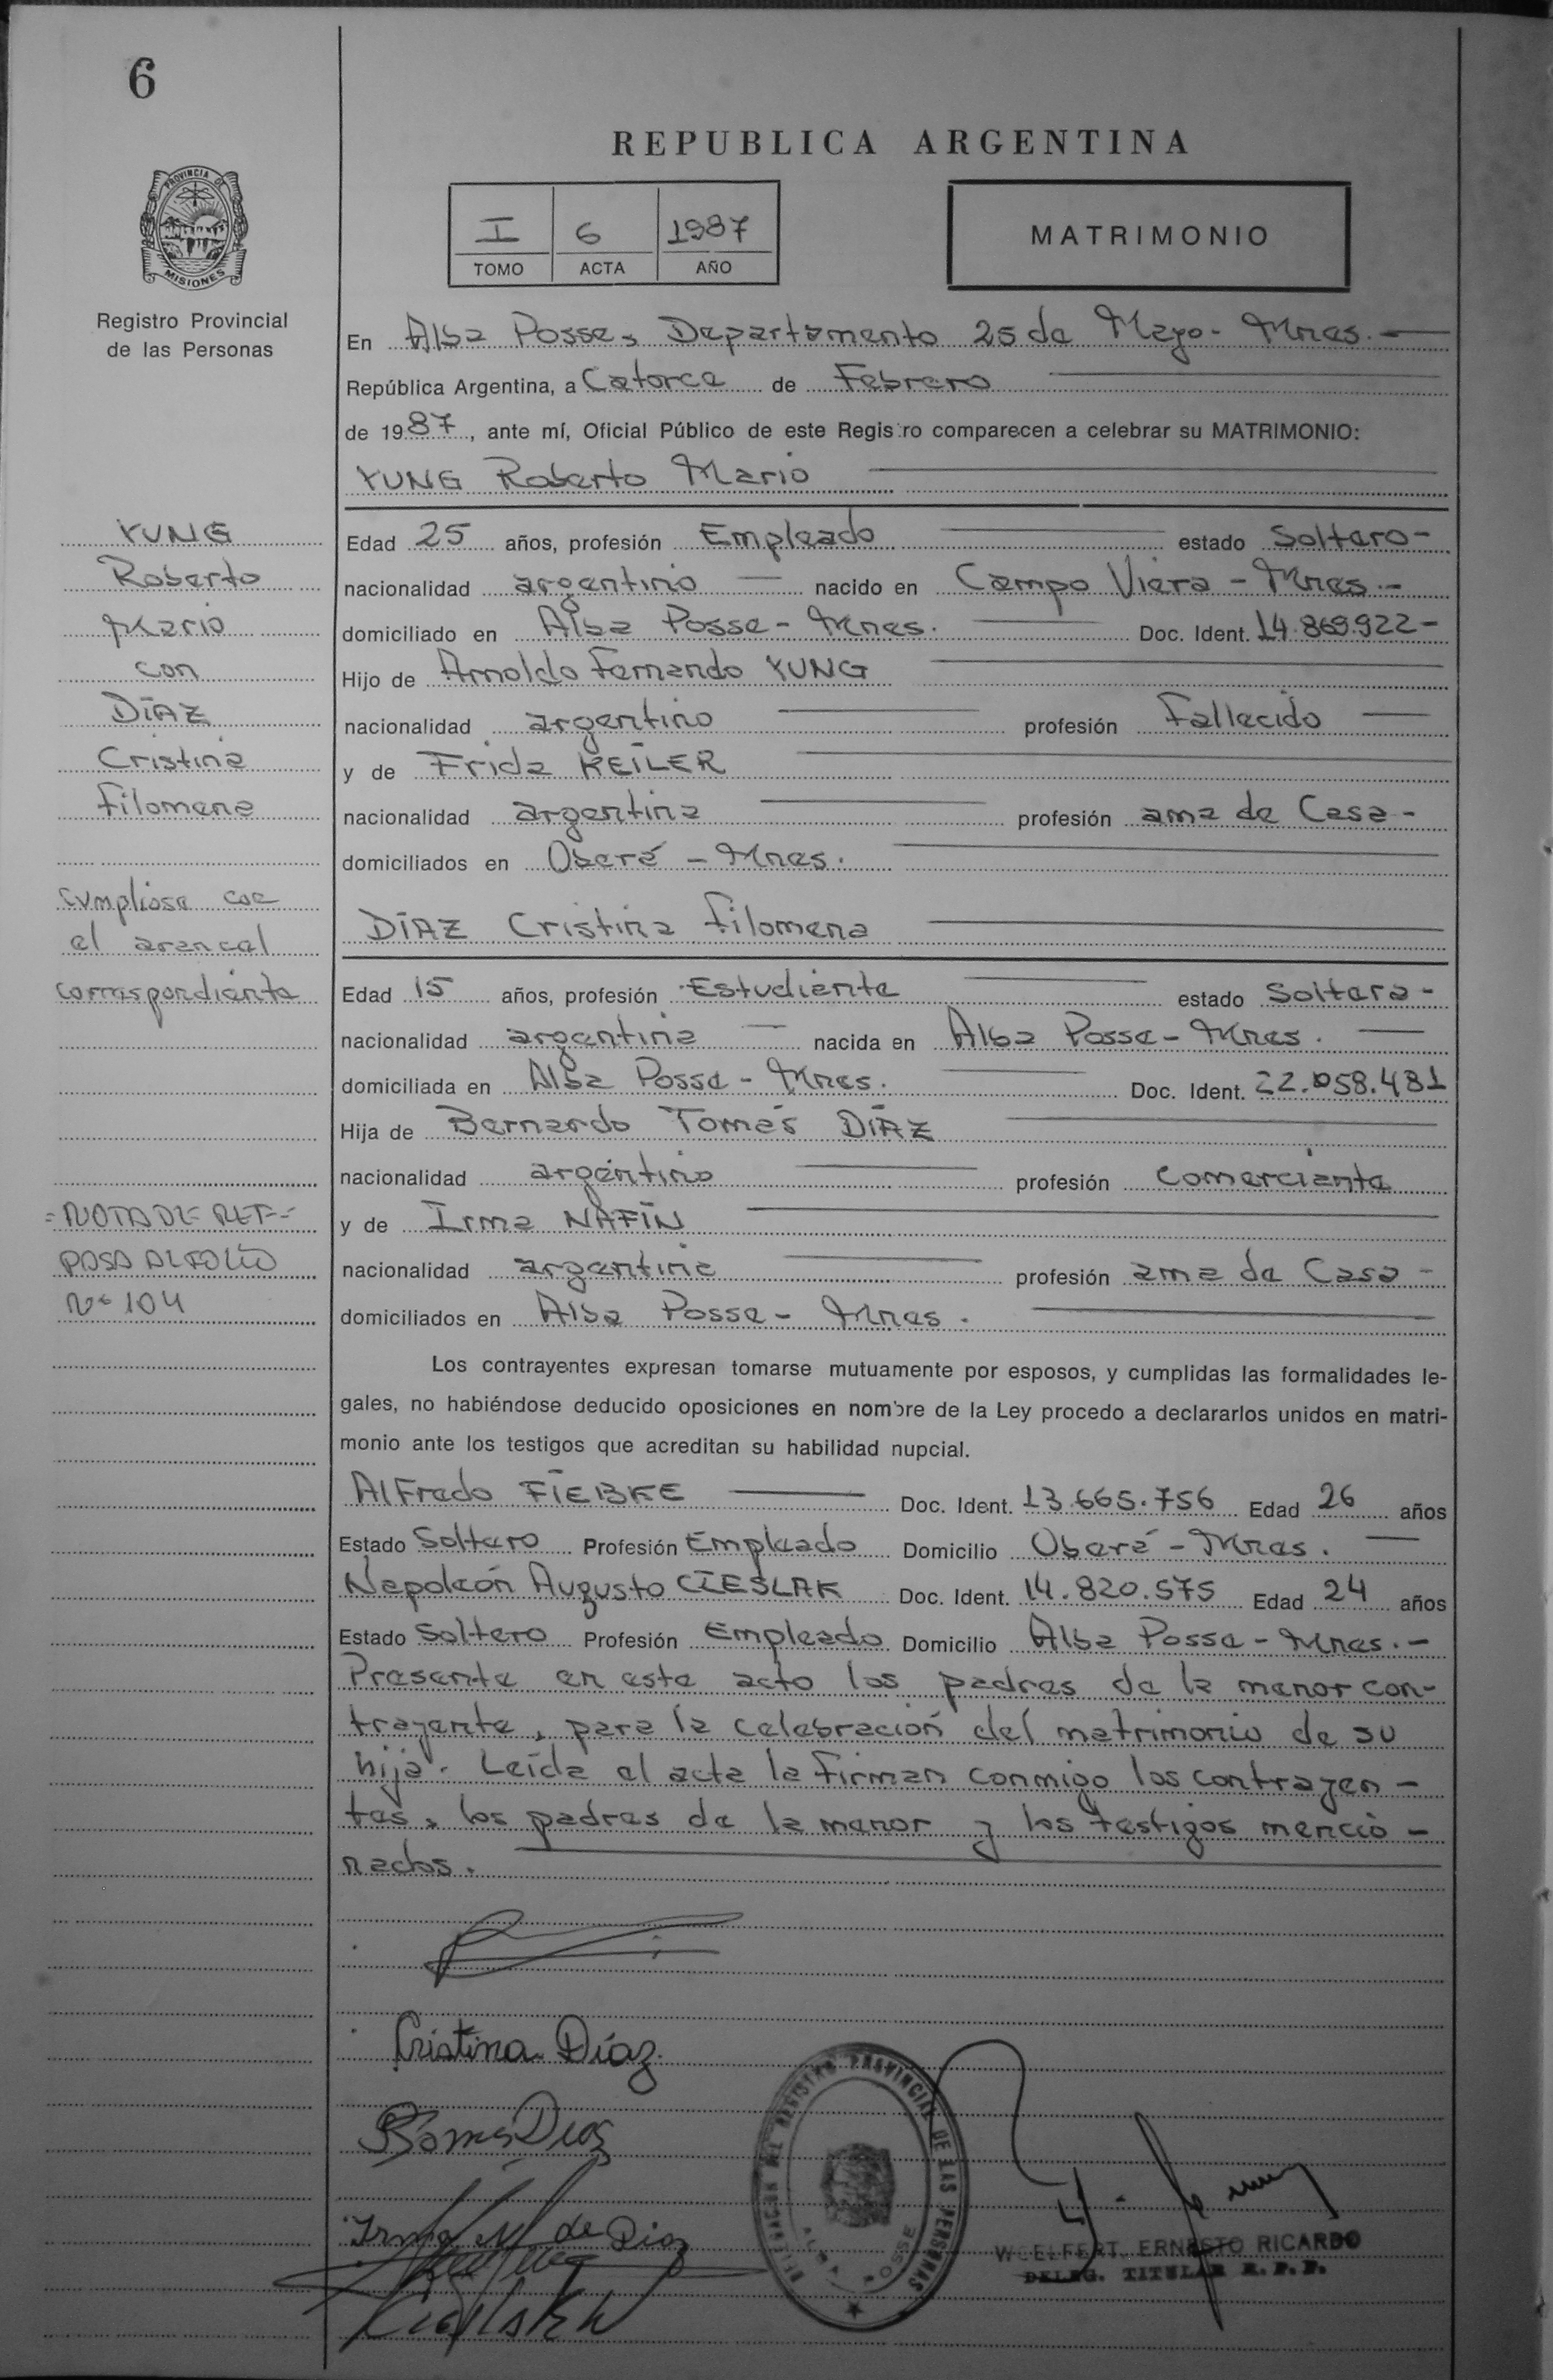 6
REPUBLICA ARGENTINA
PROVINCIA DE
MISIONES
I 6 1987
TOMO ACTA AÑO
MATRIMONIO
Registro Provincial
de las Personas
En Alba Posse, Departamento 25 de Mayo - Mnes.-
República Argentina, a Catorce de Febrero
de 1987, ante mí, Oficial Público de este Registro comparecen a celebrar su MATRIMONIO:
YUNG Roberto Mario
YUNG
Roberto
Mario
con
DÍAZ
Cristina
Filomena
Cumpliose con
el arancel
correspondiente
=NOTA DE REF=
PASA AL FOLIO
Nº 104
Edad 25 años, profesión Empleado estado Soltero-
nacionalidad argentino nacido en Campo Viera - Mnes.-
domiciliado en Alba Posse - Mnes. Doc. Ident. 14.869.922-
Hijo de Arnoldo Fernando YUNG
nacionalidad argentino profesión Fallecido
y de Frida KEILER
nacionalidad argentina profesión ama de Casa-
domiciliados en Oberá - Mnes.
DÍAZ Cristina Filomena
Edad 15 años, profesión Estudiante estado Soltera-
nacionalidad argentina nacida en Alba Posse - Mnes.
domiciliada en Alba Posse - Mnes. Doc. Ident. 22.058.481
Hija de Bernardo Tomás DÍAZ
nacionalidad argentino profesión Comerciante
y de Irma NAFIN
nacionalidad argentina profesión ama de Casa-
domiciliados en Alba Posse - Mnes.
Los contrayentes expresan tomarse mutuamente por esposos, y cumplidas las formalidades le-
gales, no habiéndose deducido oposiciones en nombre de la Ley procedo a declararlos unidos en matri-
monio ante los testigos que acreditan su habilidad nupcial.
Alfredo FIEBKE Doc. Ident. 13.665.756 Edad 26 años
Estado Soltero Profesión Empleado Domicilio Oberá - Mnes.
Napoleón Augusto CIESLAK Doc. Ident. 14.820.575 Edad 24 años
Estado Soltero Profesión Empleado Domicilio Alba Posse - Mnes.-
Presente en este acto los padres de la menor con-
trayente, para la celebración del matrimonio de su
hija. Leída el acta la firman conmigo los contrayen-
tes, los padres de la menor y los testigos mencio-
nados.
Cristina Díaz
Tomás Díaz
Irma N. de Díaz
DELEGACION DEL REGISTRO PROVINCIAL DE LAS PERSONAS
ALBA POSSE
WOELFERT ERNESTO RICARDO
DELEG. TITULAR R. P. P.